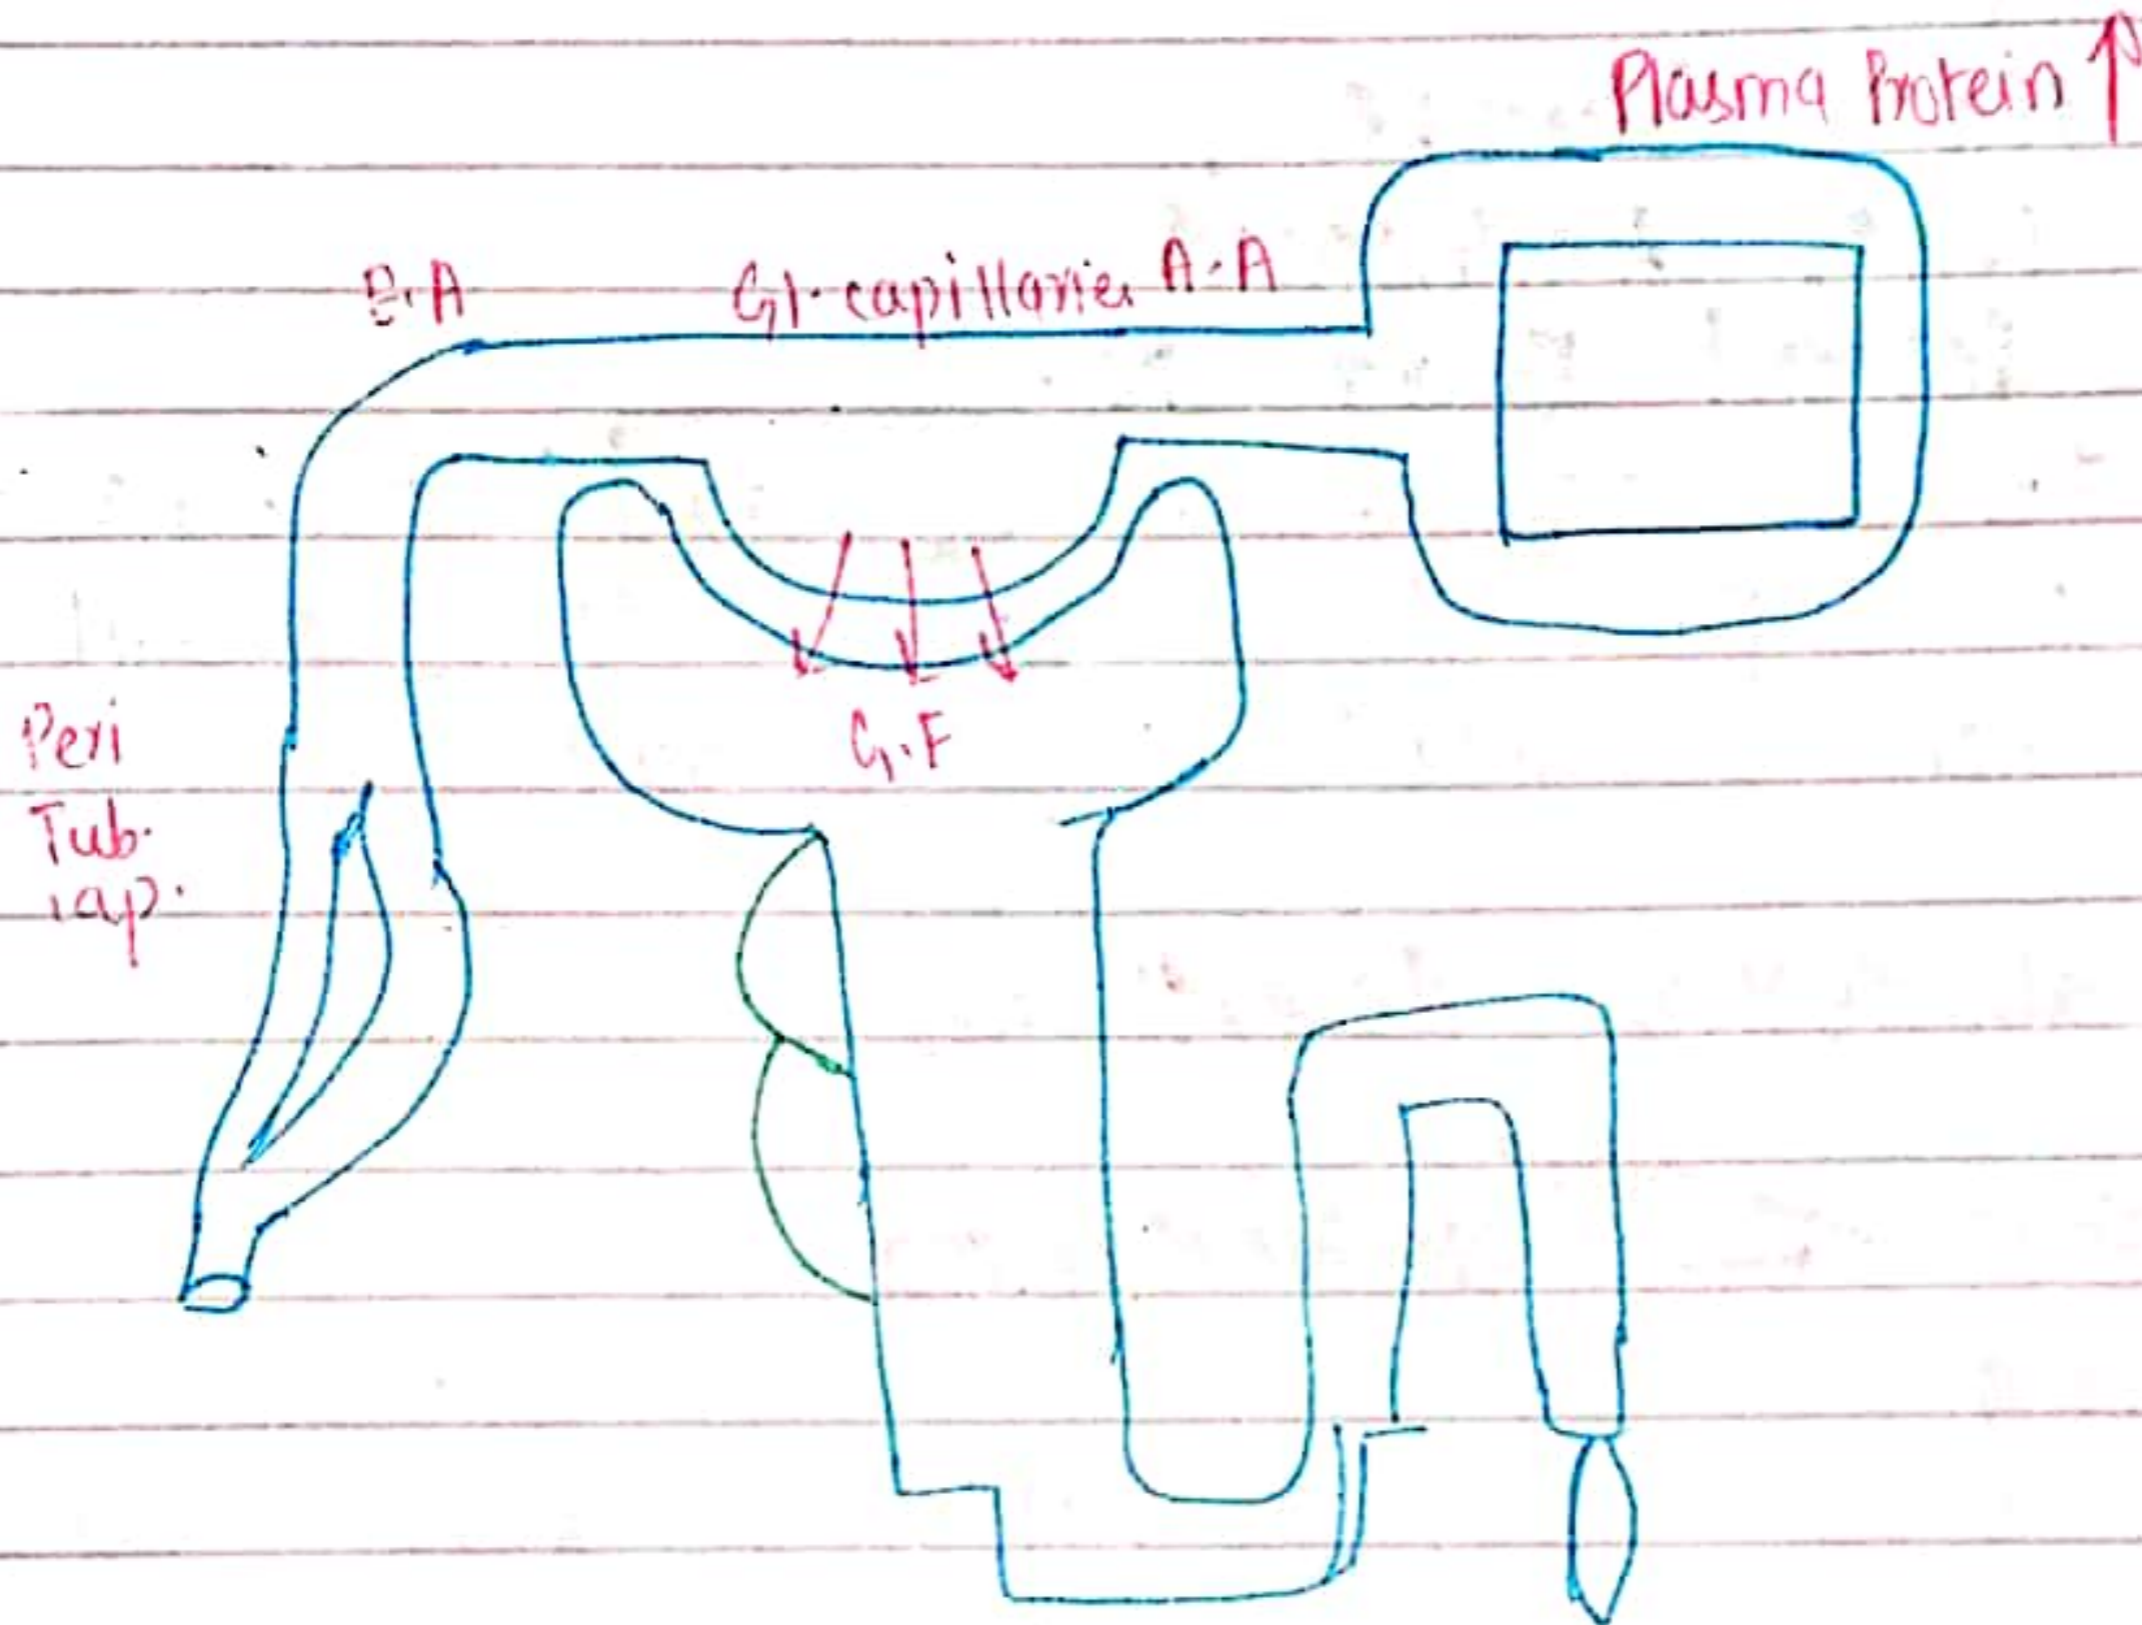 Plasma Protein ↑
E.A Gl.capillaries A.A
G.F
Peri
Tub.
cap.